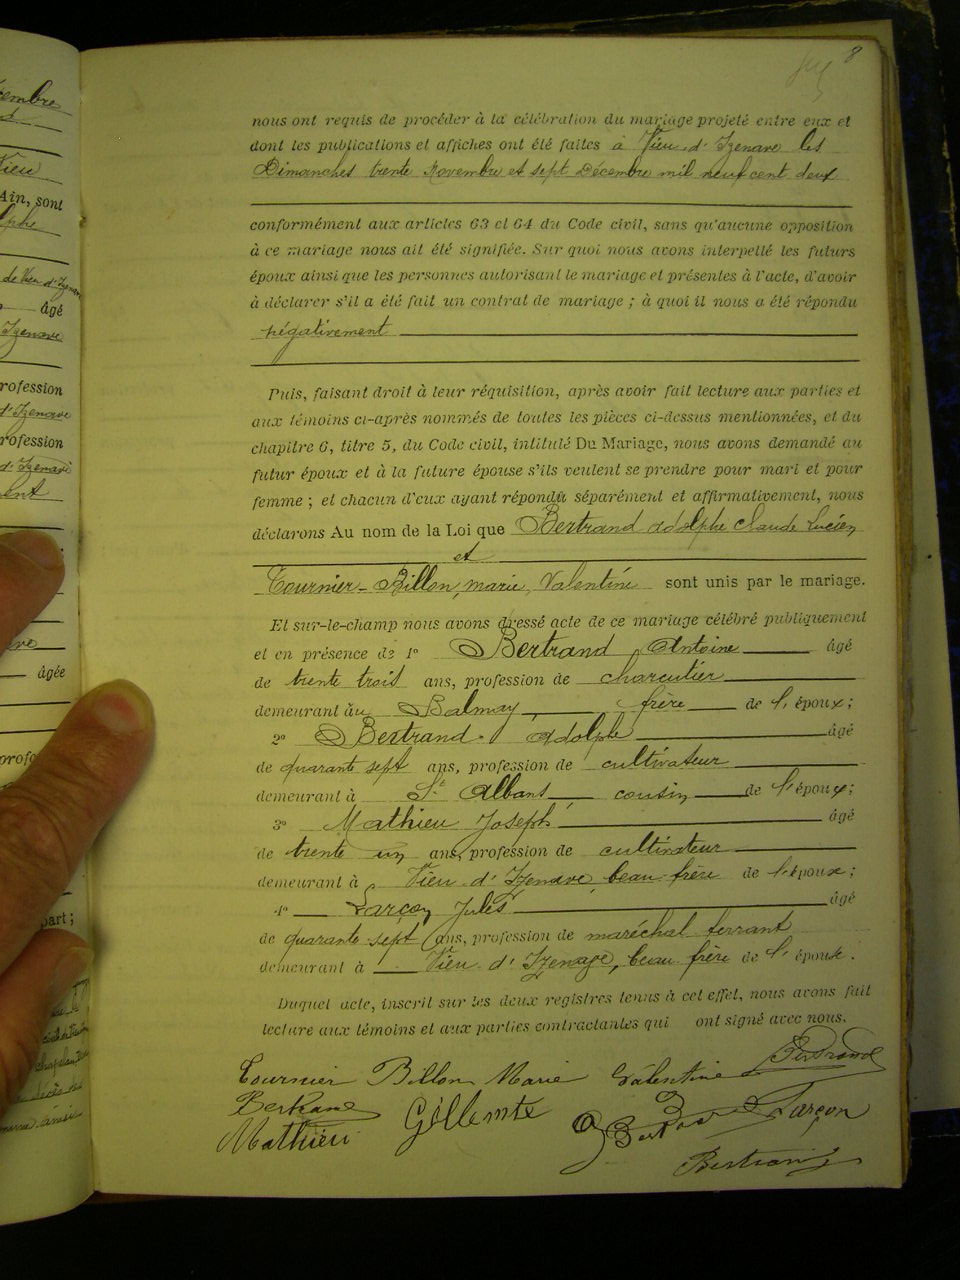 8
nous ont requis de procéder à la célébration du mariage projeté entre eux et
dont les publications et affiches ont été faites à Vieu-d'Izenave les
Dimanches trente Novembre et sept Décembre mil neuf cent deux
conformément aux articles 63 et 64 du Code civil, sans qu'aucune opposition
à ce mariage nous ait été signifiée. Sur quoi nous avons interpellé les futurs
époux ainsi que les personnes autorisant le mariage et présentes à l'acte, d'avoir
à déclarer s'il a été fait un contrat de mariage ; à quoi il nous a été répondu
négativement
Puis, faisant droit à leur réquisition, après avoir fait lecture aux parties et
aux témoins ci-après nommés de toutes les pièces ci-dessus mentionnées, et du
chapitre 6, titre 5, du Code civil, intitulé Du Mariage, nous avons demandé au
futur époux et à la future épouse s'ils veulent se prendre pour mari et pour
femme ; et chacun d'eux ayant répondu séparément et affirmativement, nous
déclarons Au nom de la Loi que Bertrand Adolphe Claude Lucien
et
Tournier-Billon, marie, Valentine sont unis par le mariage.
Et sur-le-champ nous avons dressé acte de ce mariage célébré publiquement
et en présence de 1° Bertrand Antoine âgé
de trente trois ans, profession de charcutier
demeurant au Balmay, frère de l'époux;
2° Bertrand Adolphe âgé
de quarante sept ans, profession de cultivateur
demeurant à St Albans cousin de l'époux;
3° Mathieu Joseph âgé
de trente un ans, profession de cultivateur
demeurant à Vieu d'Izenave, beau-frère de l'époux;
4° Larçon Jules âgé
de quarante sept ans, profession de maréchal ferrant
demeurant à Vieu d'Izenave, beau frère de l'épouse.
Duquel acte, inscrit sur les deux registres tenus à cet effet, nous avons fait
lecture aux témoins et aux parties contractantes qui ont signé avec nous.
Tournier Billon Marie Valentine Bertrand
Bertrand Gillemte Larçon
Mathieu
Bertrand
embre
Vieu
Ain, sont
lphe
de Vieu d'Izenave
âgé
Izenave
rofession
d'Izenave
rofession
d'Izenave
ent
âgée
profe
part;